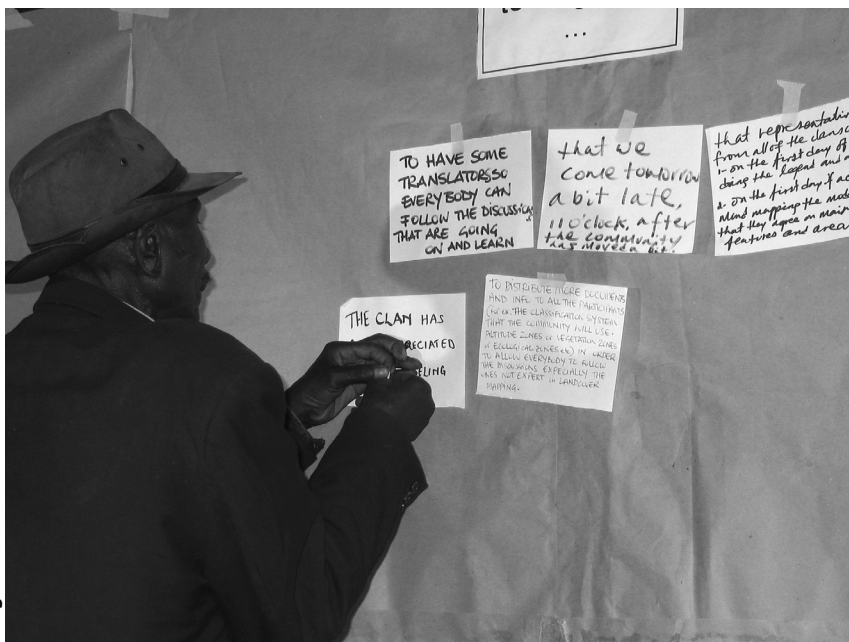 ...
TO HAVE SOME
TRANSLATORS, SO
EVERYBODY CAN
FOLLOW THE DISCUSSIONS
THAT ARE GOING
ON AND LEARN
that we
come tomorrow
a bit late,
11 o'clock, after
the community
has moved a bit.
that representati
from all of the clans
1- on the first day of
doing the legend and
2- on the first day of
mind mapping the
that they agree on main
features and area
THE CLAN HAS
RECIATED
ELING
TO DISTRIBUTE MORE DOCUMENTS
AND INFO TO ALL THE PARTICIPANTS
(for ex. THE CLASSIFICATION SYSTEM
THAT THE COMMUNITY WILL USE.
ALTITUDE ZONES or VEGETATION ZONES
or ECOLOGICAL ZONES etc) IN ORDER
TO ALLOW EVERYBODY TO FOLLOW
THE DISCUSSIONS EXPECIALLY THE
ONES NOT EXPERT IN LANDCOVER
MAPPING.